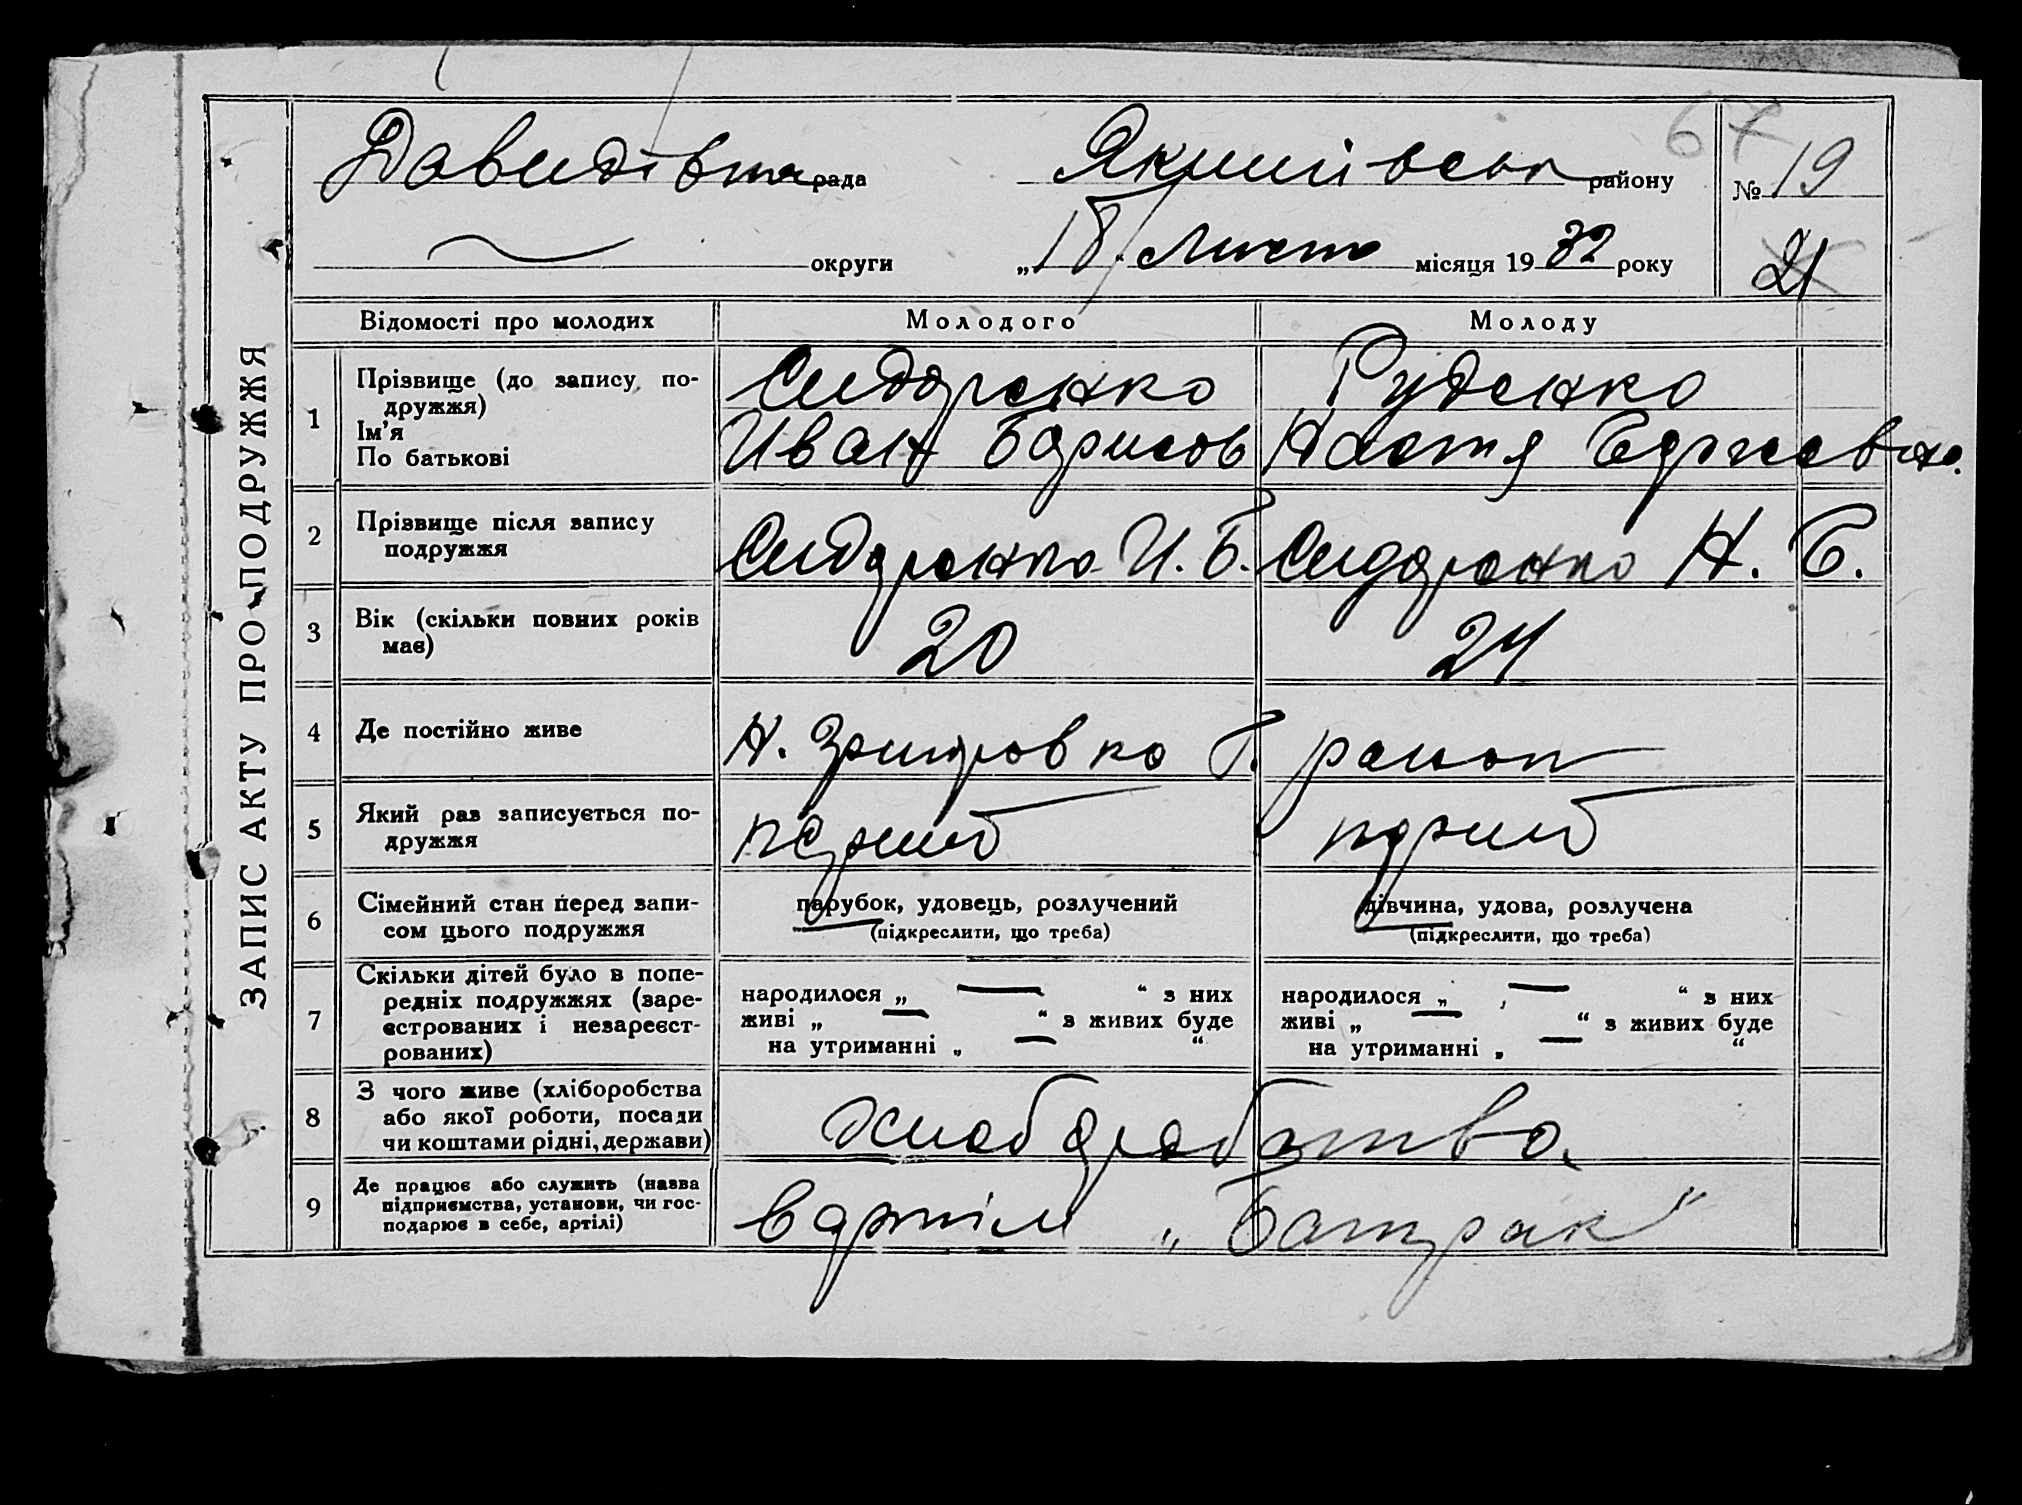 67
Давидівська рада Якимівськ району № 19
округи „18“ Листо місяця 1932 року 21
ЗАПИС АКТУ ПРО ПОДРУЖЖЯ
Відомості про молодих Молодого Молоду
1 Прізвище (до запису по-
дружжя) Сидоренко Руденко
Ім'я
По батькові Иван Борисов Настя
2 Прізвище після запису
подружжя Сидоренко И. Б. Сидоренко Н. Е.
3 Вік (скільки повних років
має) 20 24
4 Де постійно живе Н. район
5 Який раз записується по-
дружжя перший перший
6 Сімейний стан перед запи-
сом цього подружжя
парубок, удовець, розлучений
(підкреслити, що треба)
дівчина, удова, розлучена
(підкреслити, що треба)
7 Скільки дітей було в попе-
редніх подружжях (заре-
єстрованих і незареєст-
рованих)
народилося „ — “ з них
живі „ — “ з живих буде
на утриманні „ — “
народилося „ — “ з них
живі „ — “ з живих буде
на утриманні „ — “
8 З чого живе (хліборобства
або якої роботи, посади
чи коштами рідні, держави)
хлеборобство.
9 Де працює або служить (назва
підприємства, установи, чи гос-
подарює в себе, артілі)
в артіли „Батрак“